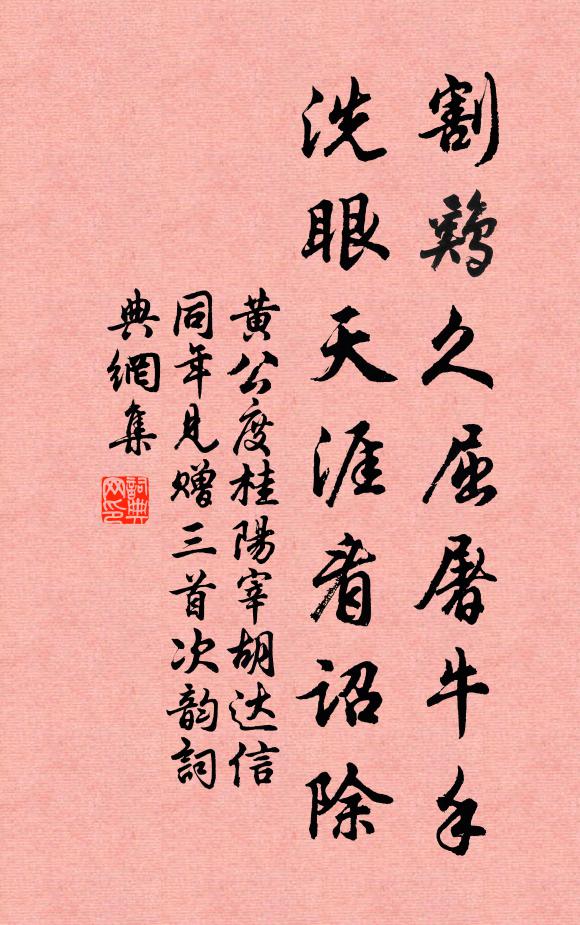 割鷄久屈屠牛手
洗眼天涯看詔除
黄公度桂陽宰胡达信
同年見赠三首次韵詞
典網集
詞典
网印